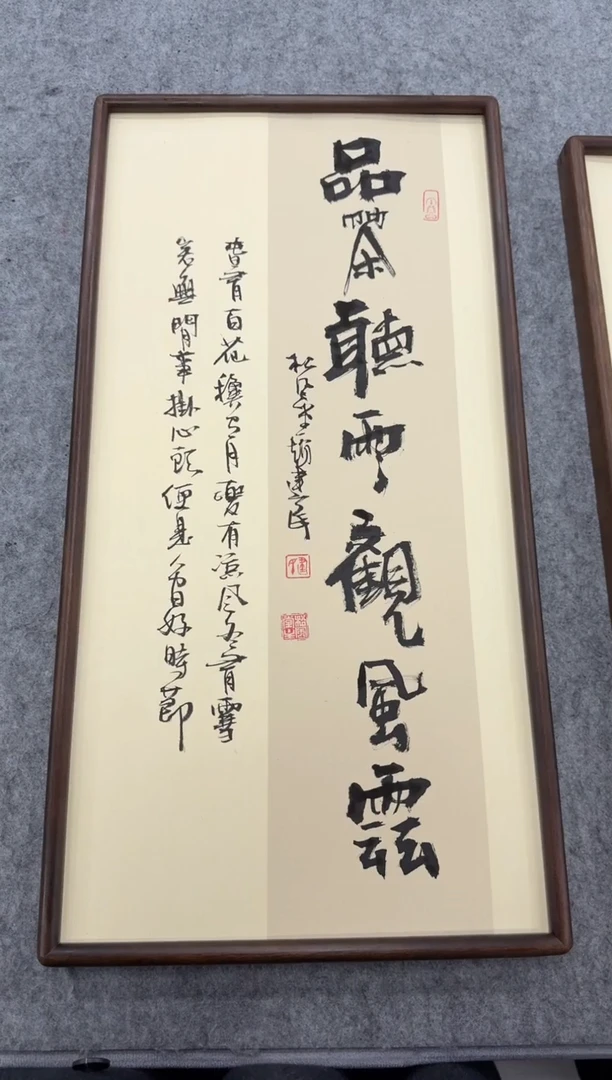 品茶聽雨觀風雲
趙建民
春有百花龝有月夏有涼風冬有雪
若無閒事掛心頭便是人間好時節